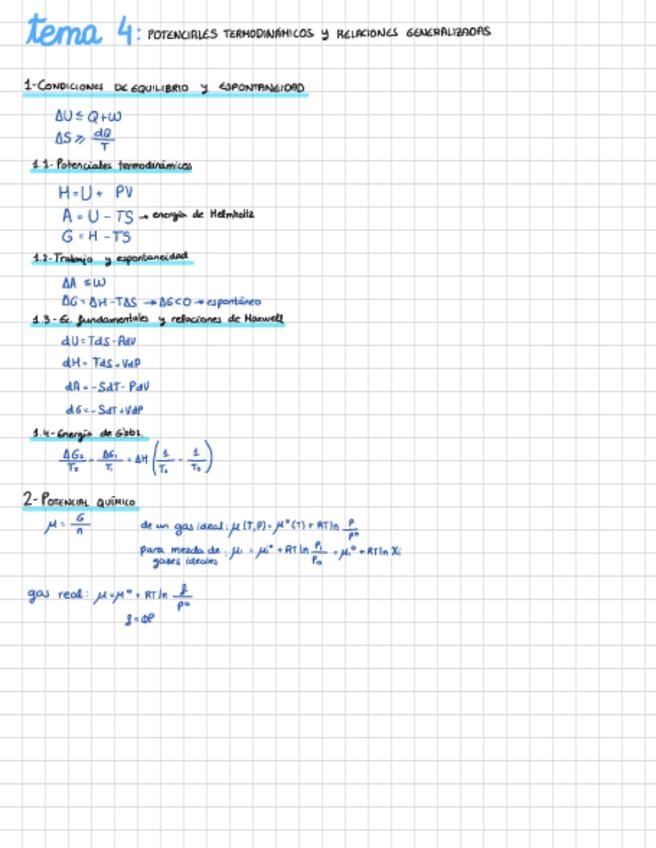 tema 4: POTENCIALES TERMODINÁMICOS y RELACIONES GENERALIZADAS
1-CONDICIONES DE EQUILIBRIO y ESPONTANEIDAD
ΔU ≤ Q+W
ΔS ≥ dQ/T
1.1- Potenciales termodinámicos
H = U + PV
A = U - TS → energía de Helmholtz
G = H - TS
1.2- Trabajo y espontaneidad
ΔA ≤ W
ΔG = ΔH - TΔS → ΔG<0 → espontáneo
1.3- Ec. fundamentales y relaciones de Maxwell
dU = TdS - PdV
dH = TdS + VdP
dA = -SdT - PdV
dG = -SdT + VdP
1.4- Energía de Gibbs.
ΔG₂/T₂ - ΔG₁/T₁ = ΔH (1/T₂ - 1/T₁)
2- POTENCIAL QUÍMICO
μ = G/n de un gas ideal: μ(T,P) = μ°(T) + RT ln P/P°
para mezcla de gases ideales: μᵢ = μᵢ° + RT ln Pᵢ/P₀ = μᵢ° + RT ln Xᵢ
gas real: μ = μ° + RT ln f/P°
f = ΦP